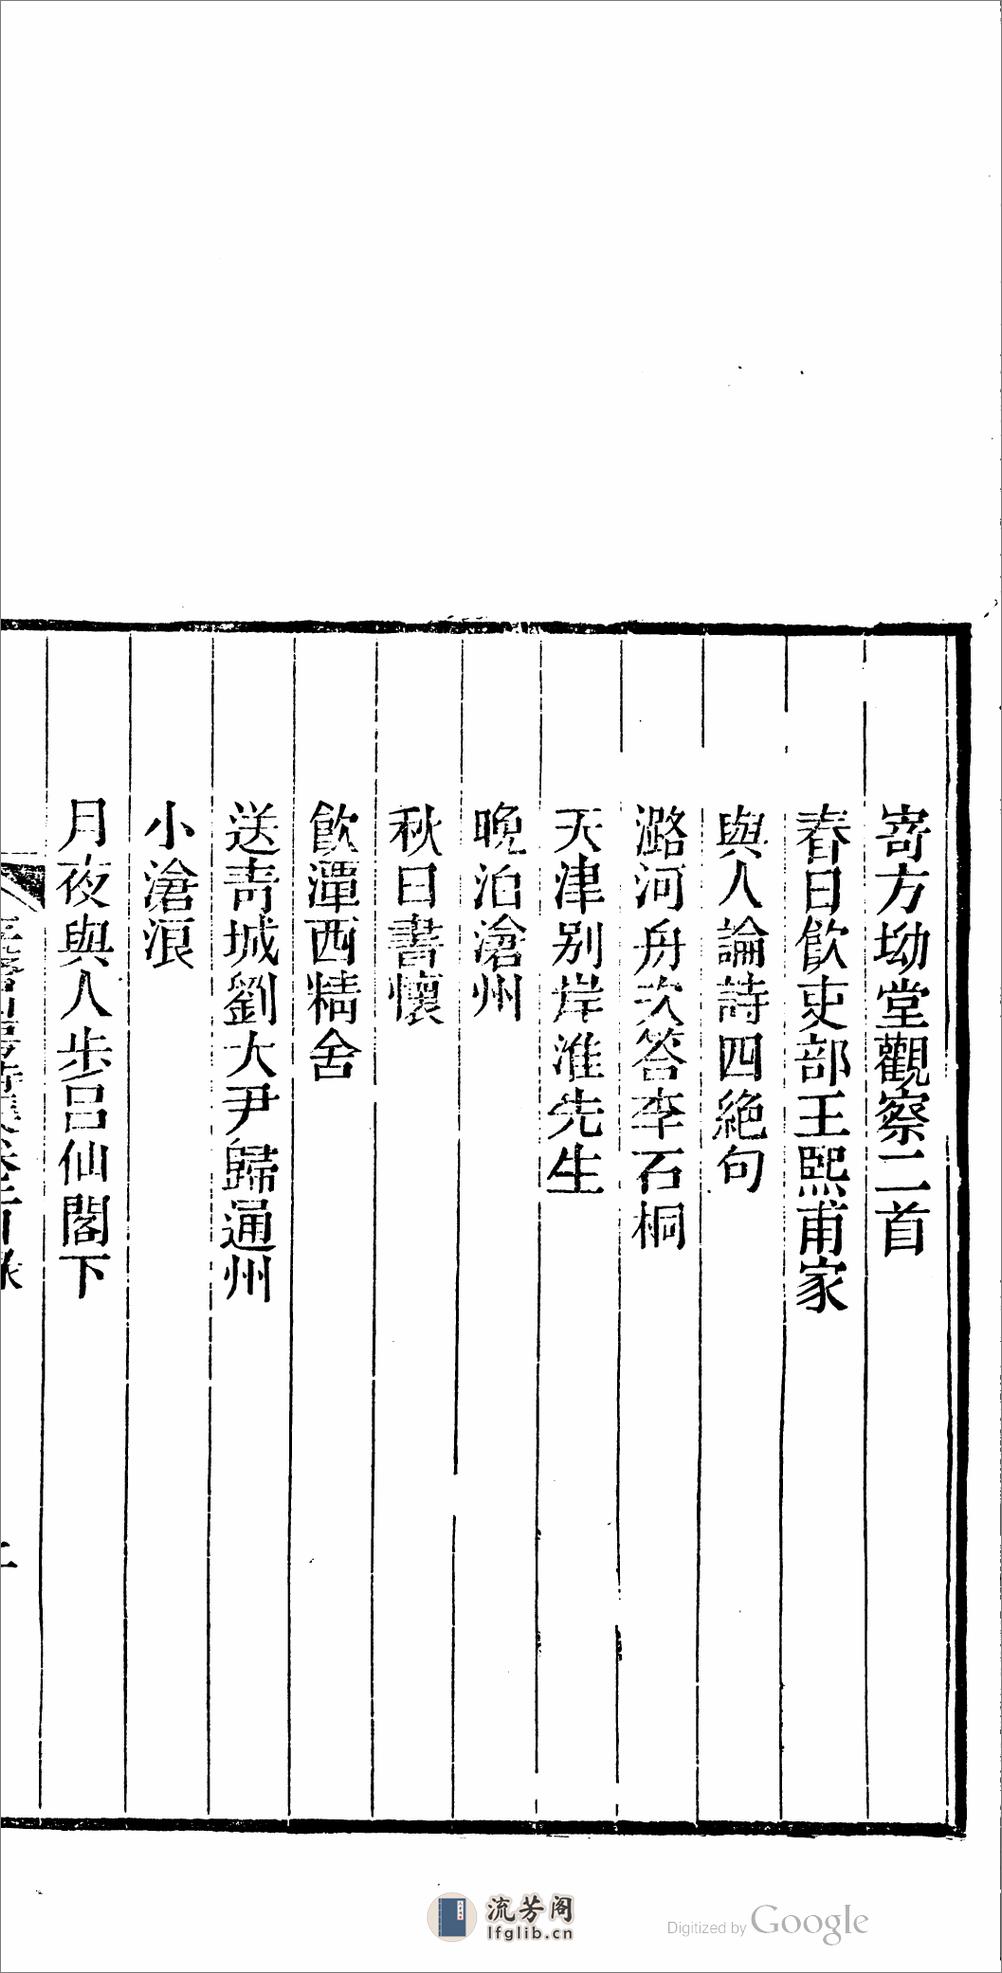 寄方坳堂觀察二首
春日飲吏部王熙甫家
與人論詩四絶句
潞河舟次答李石桐
天津别岸淮先生
晩泊滄州
秋日書懷
飮潭西精舍
送青城劉大尹歸通州
小滄浪
月夜與人步呂仙閣下
流芳阁
lfglib.cn
Digitized by Google